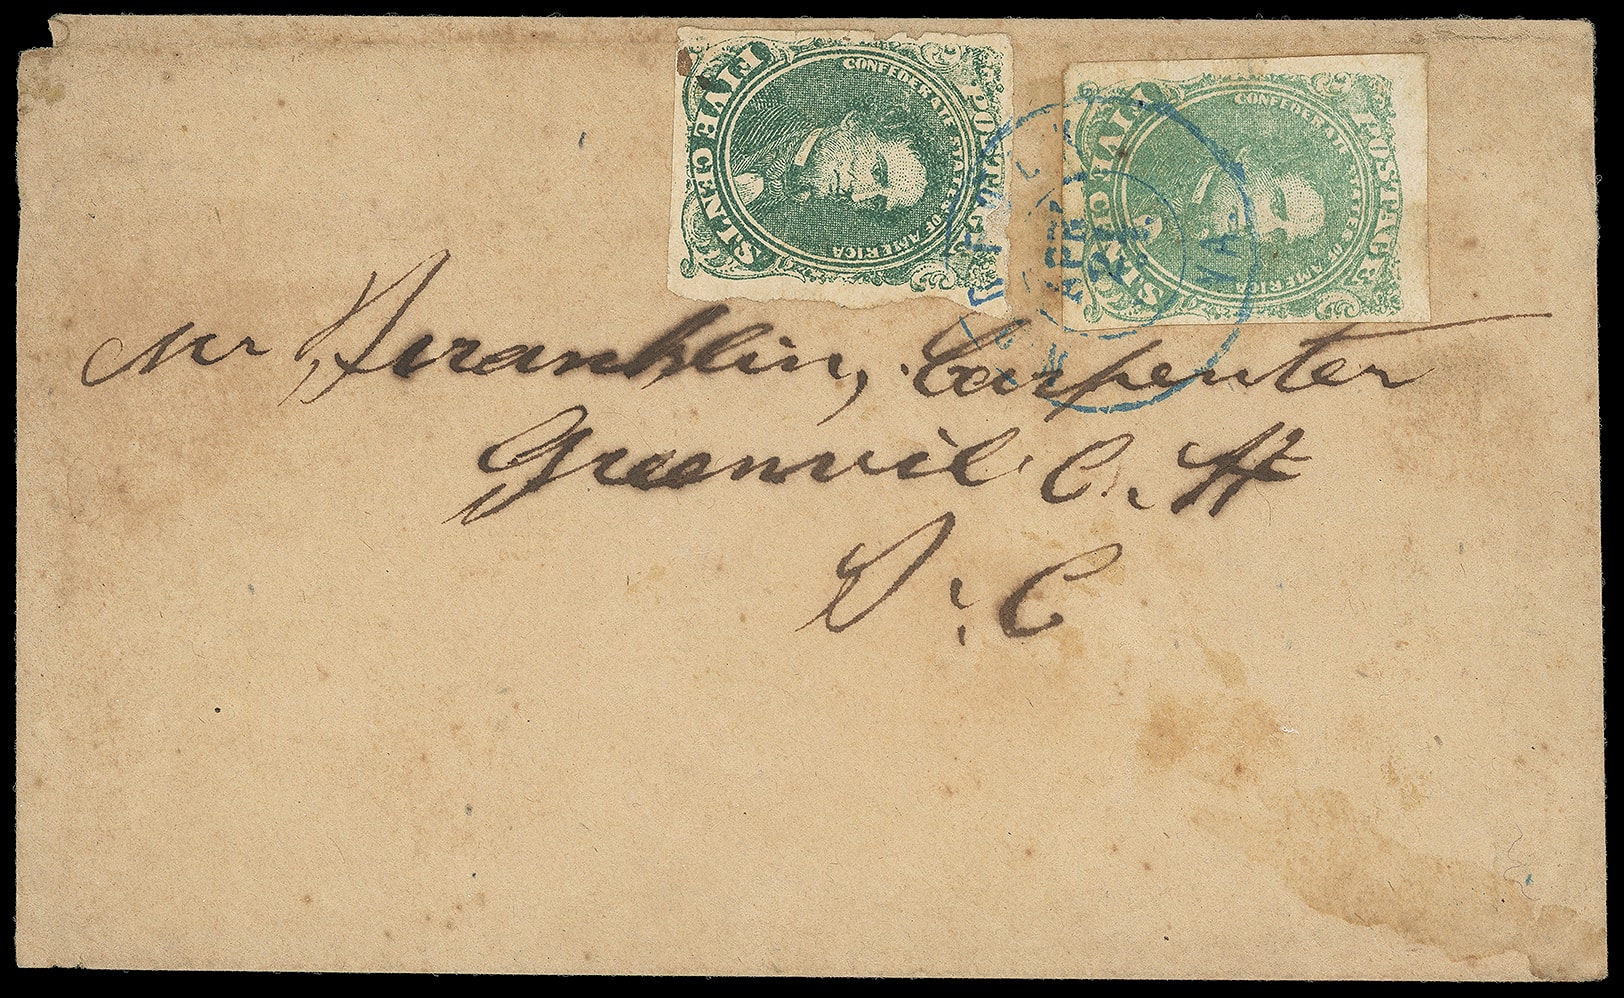 FIVE CENTS
CONFEDERATE STATES OF AMERICA
POSTAGE
FIVE CENTS
CONFEDERATE STATES OF AMERICA
POSTAGE
APR
21
VA.
Mr Franklin, Carpenter
Greenvil C. H
S. C